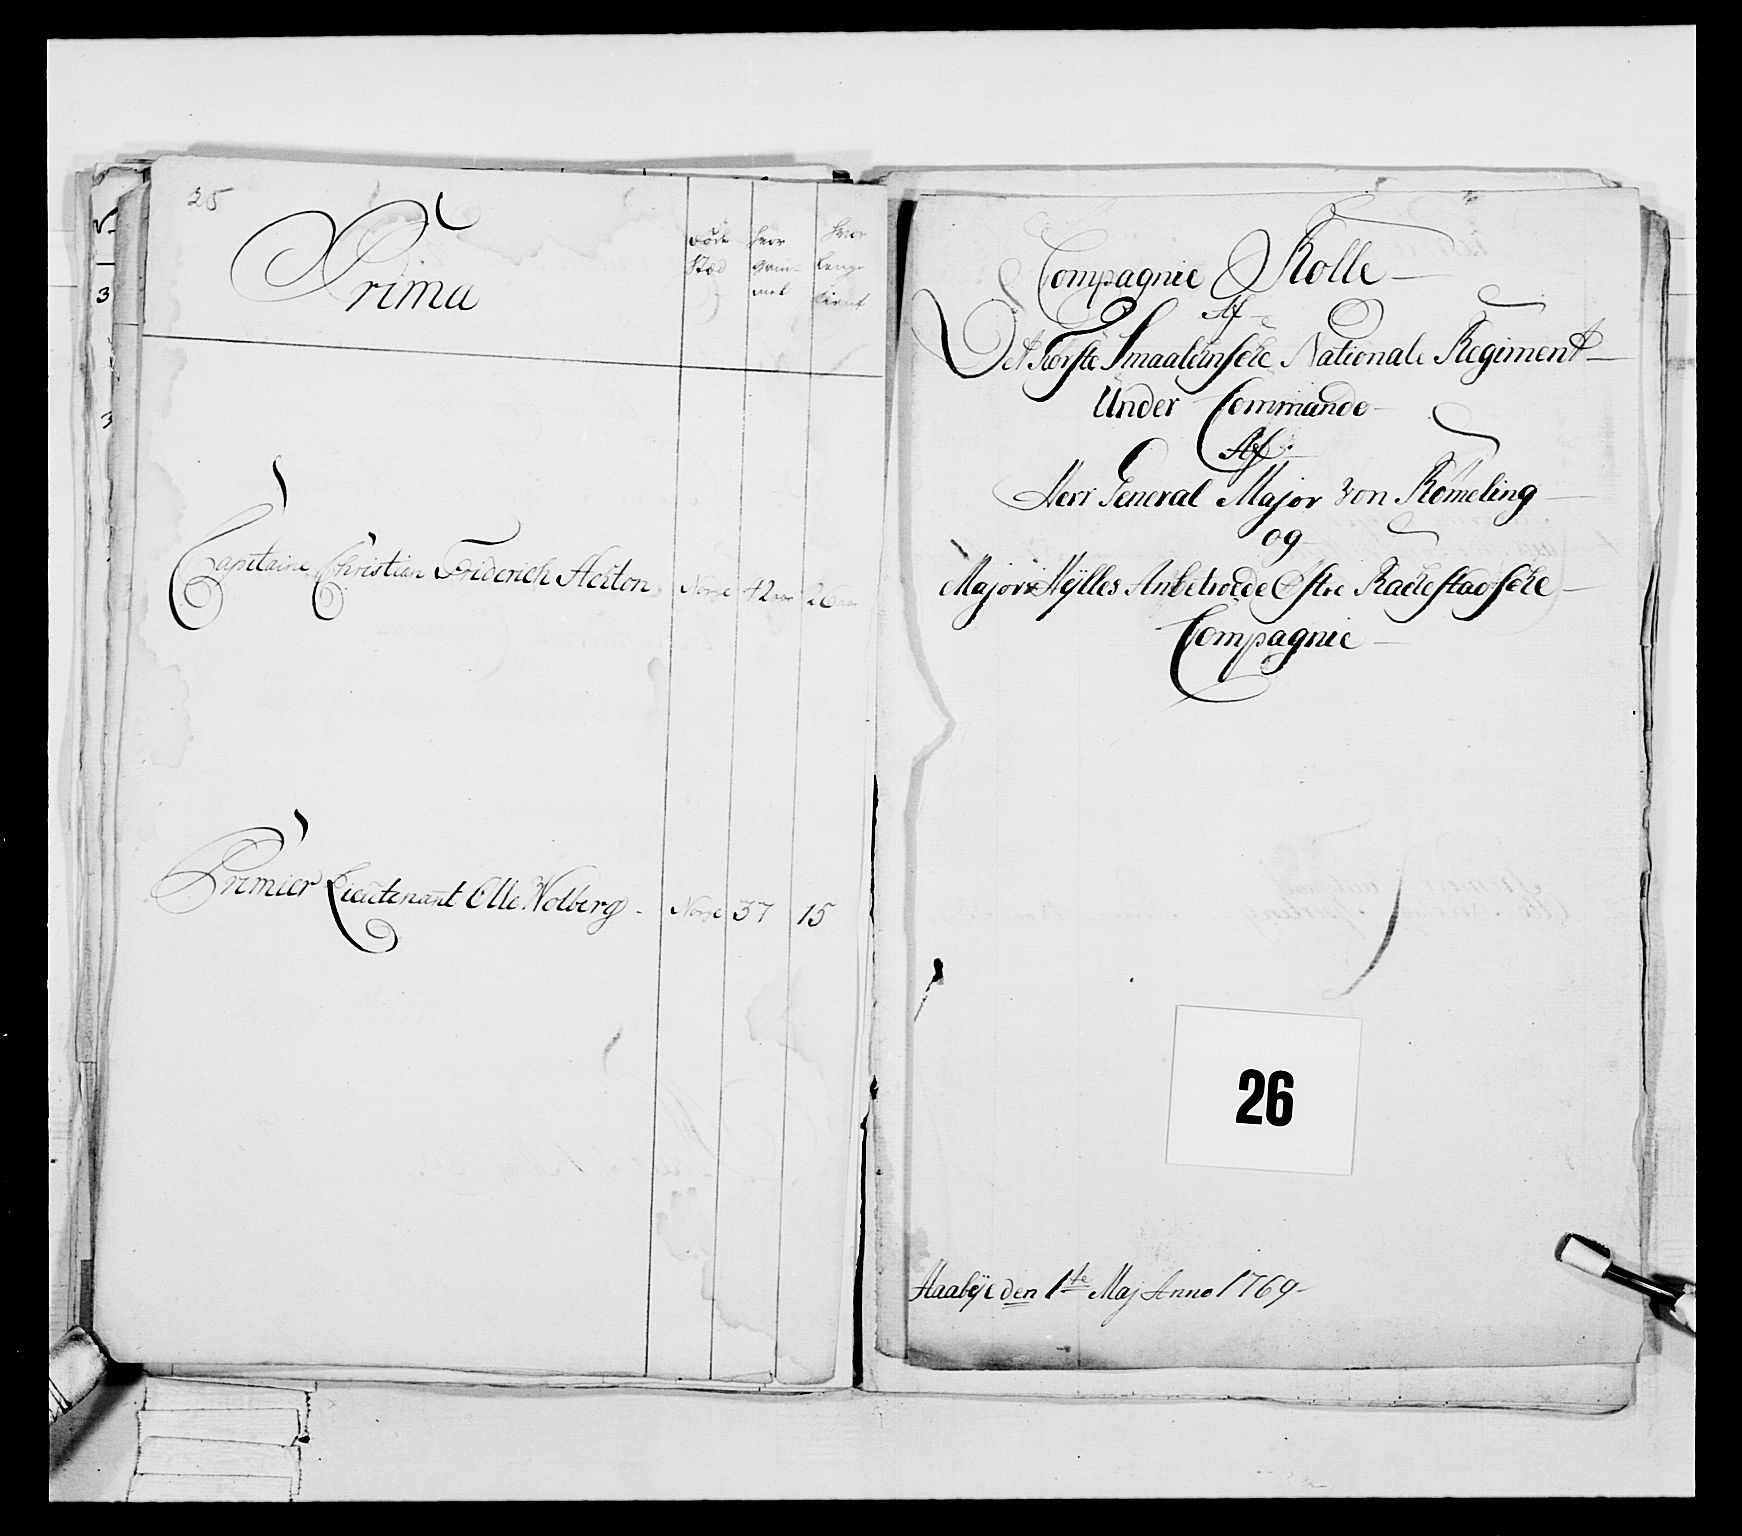 25
Prima
Føde Stæd
hvor Gam= mel
hvor lenge tient
Capitaine Christian Friderich Hexton Norge 42 aar 26 aar
Premier Lieutenant Olle Wolberg - Norge 37 15
3
3
Compagnie Rolle
Af
Det Første Smaalehnske Nationale Regiment
Under Commando
Af
Herr General Major von Rømeling
og
Major Hÿlles Anbetroede Østre Rackestadske
Compagnie
26
Haabÿe den 1te Maj Anno 1769